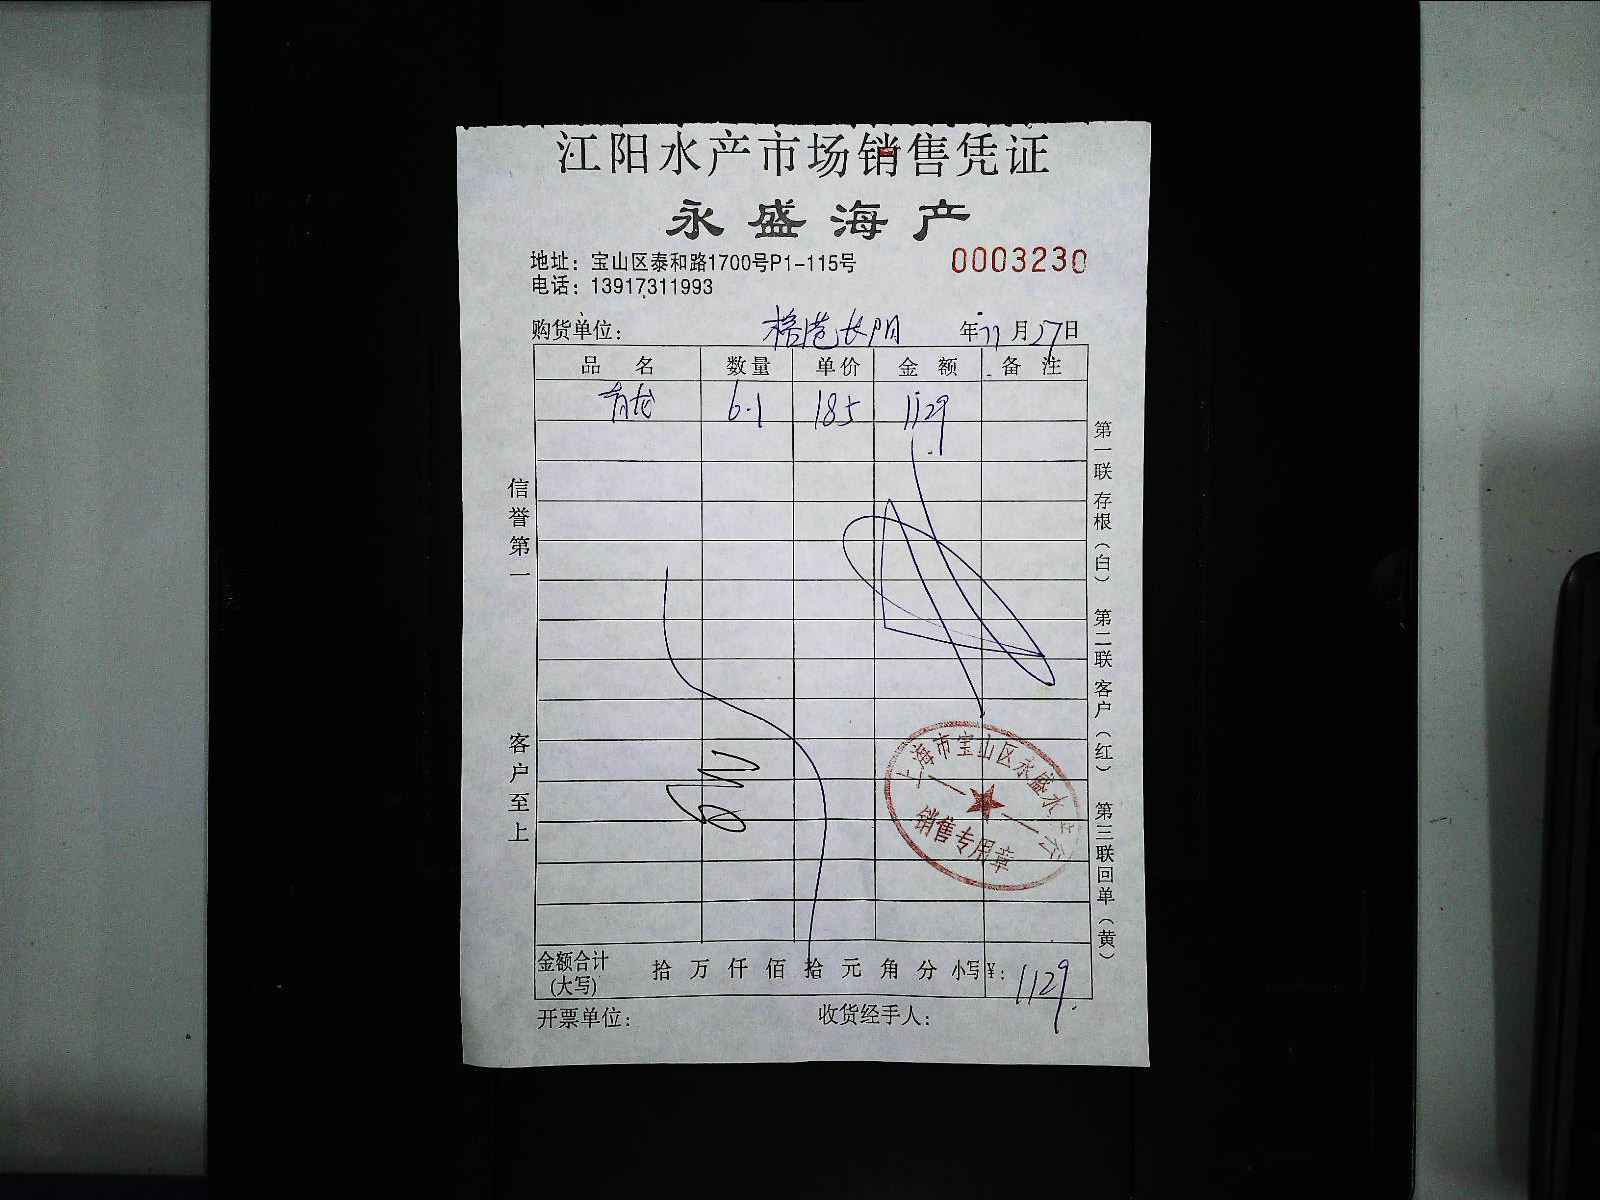 江阳水产市场销售凭证
永盛海产
地址：宝山区泰和路1700号P1-115号
0003230
电话：13917311993
购货单位： 年 11 月 27 日
品名 数量 单价 金额 备注
青龙 6.1 185 1129
信誉第一
客户至上
第一联 存根（白） 第二联 客户（红） 第三联 回单（黄）
上海市宝山区永盛水
销售专用章
金额合计（大写） 拾 万 仟 佰 拾 元 角 分 小写¥：1129.
开票单位： 收货经手人：